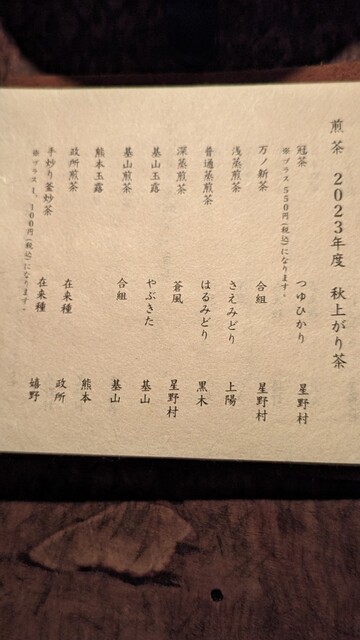 煎茶 2023年度 秋上がり茶
冠茶 つゆひかり 星野村
※プラス550円(税込)になります。
万ノ新茶 合組 星野村
浅蒸煎茶 さえみどり 上陽
普通蒸煎茶 はるみどり 黒木
深蒸煎茶 蒼風 星野村
基山玉露 やぶきた 基山
基山煎茶 合組 基山
熊本玉露 熊本
政所煎茶 在来種 政所
手炒り釜炒茶 在来種 嬉野
※プラス1,100円(税込)になります。